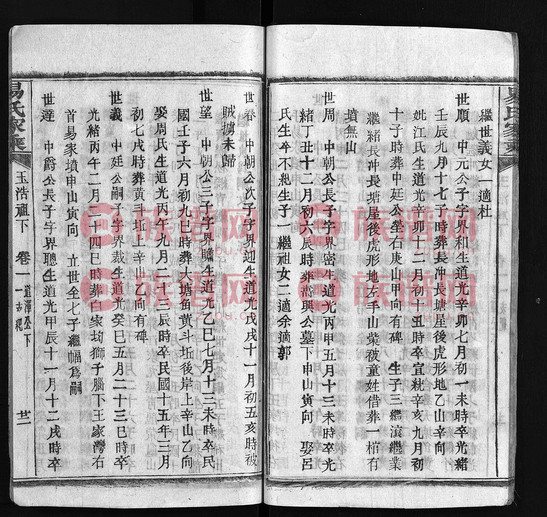 易氏家乘
繼世義女一適杜
世順 中元公子字界和生道光辛卯七月初一未時卒光緒
壬辰九月十七子時葬長冲長塘屋後虎形地乙山辛向
姚江氏生道光辛卯十二月初一丑時卒宣統辛亥九月初
十子時葬中廷公塋右庚山甲向有碑 生子三繼濱繼業
繼緒長冲長塘屋後虎形地左手山業被童姓借葬一棺有
墳無山
世周 中朝公長子字界密生道光丙申五月十三未時卒光
緒丁丑十二月初六辰時葬燕興公墓下申山寅向 娶呂
氏生卒不紀生子一繼祖女二適余適郭
世春 中朝公次子字界迎生道光戊戌十一月初五亥時被
賊擄未歸
世望 中朝公三子字界瞻生道光乙巳七月十三未時卒民
國壬子六月初九巳時葬大塘魚黃斗坵後岸上辛山乙向
娶周氏生道光丙午九月二十三辰時卒民國十五年三月
初七戌時葬黃斗坵上辛山乙向有碑
世義 中廷公嗣子字界裁生道光癸巳五月二十三巳時卒
光緒丙午二月二十四巳時葬易家坳獅子腦下王家灣右
首易家墳申山寅向 立世全七子繼幅爲嗣
世達 中爵公長子字界聰生道光甲辰十一月十二戌時卒
易氏家乘
玉浩祖下
卷一
族譜网